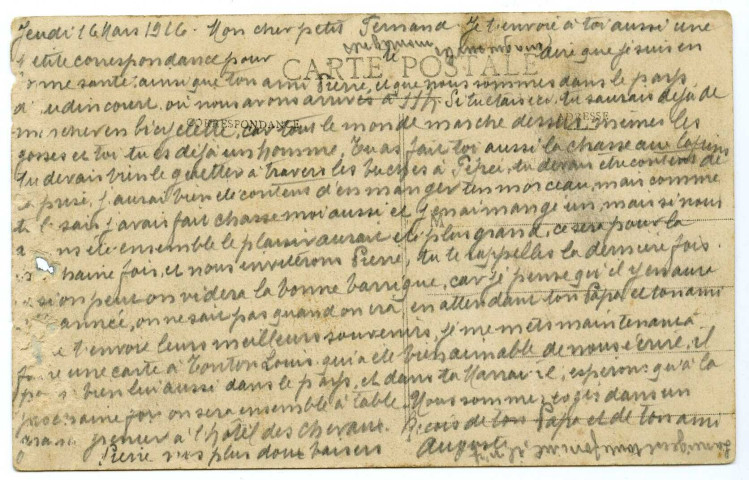 Jeudi 16 Mars 1916. Mon cher petit Fernand. Je t'envoie à toi aussi une
petite correspondance pour dire que je suis en
CARTE POSTALE
santé, ainsi que ton ami Pierre, et que nous sommes dans le pays
d'Audincourt, où nous avons arrivés à Si tu étais ici, tu saurais déjà
CORRESPONDANCE
ADRESSE
marcher en bicyclette, car tout le monde marche dessus, mêmes les
gosses et toi tu es déjà un homme, Tu as fait toi aussi la chasse aux lapins
tu devais bien le guetter à travers les buches à Pépée, tu devais être content de
j'aurai bien été content d'en manger un morceau, mais comme
tu sais, j'avais fait chasse moi aussi et j'en ai mangé un, mais si nous
été ensemble le plaisir aurait été plus grand, ce sera pour la
chaine fois, et nous inviterons Pierre, tu te rappelles la dernière fois.
si on peut on videra la bonne barrique, car je pense qu'il y en aura
année, on ne sait pas quand on ira en attendant ton Papa et ton ami
t'envoie leurs meilleurs souvenirs, je me mets maintenant à
faire une carte à Tonton Louis, qui a été bien aimable de nous écrire, il
bien lui aussi dans le pays, et dans ta il, espérons qu'à la
prochaine fois on sera ensemble à table. Nous sommes logés dans un
grenier à l'hôtel des chevaux. Reçois de ton Papa et de ton ami
Pierre nos plus doux baisers Auguste